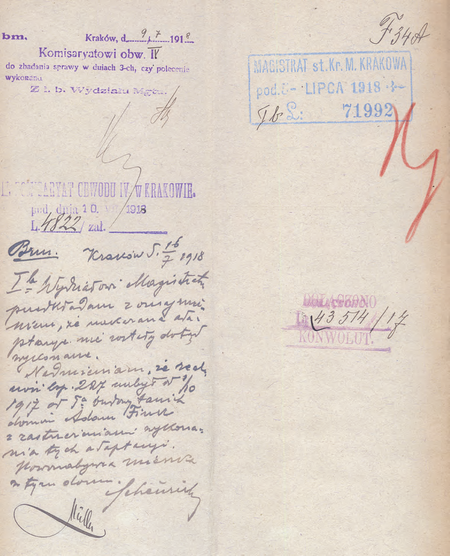 bm. Kraków, d. 9/7 1918
Komisaryatowi obw. IV
do zbadania sprawy w dniach 3-ch, czy polecenie
wykonano
Z I. b. Wydziału Mgtu.
F 34A
MAGISTRAT st. Kr. M. KRAKOWA
pod. LIPCA 1918
I b L: 71992
KOMISARYAT OBWODU IV. w KRAKOWIE.
pod. dnia 10 1918
L. 4822/ zał.
Brm. Kraków d. 16/7 1918
I b Wydziałowi Magistratu
przedkładam z oznajmie-
niem, że nakazane ada-
ptacye nie zostały dotąd
wykonane.
Nadmieniam, że
lsp. 227 nabył od 1/10
1917 od budowy tanich
domów Adam
z zastrzeżeniami wykona-
nia tych adaptacyi.
mieszka
w tym domu.
DOŁĄCZONO
43514/17
KONWOLUT.